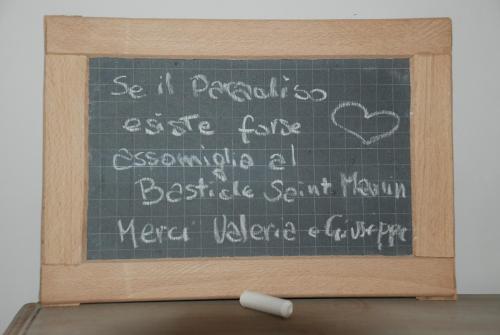 Se il Paradiso
esiste forse
assomiglia al
Bastide Saint Martin
Merci Valeria e Giuseppe